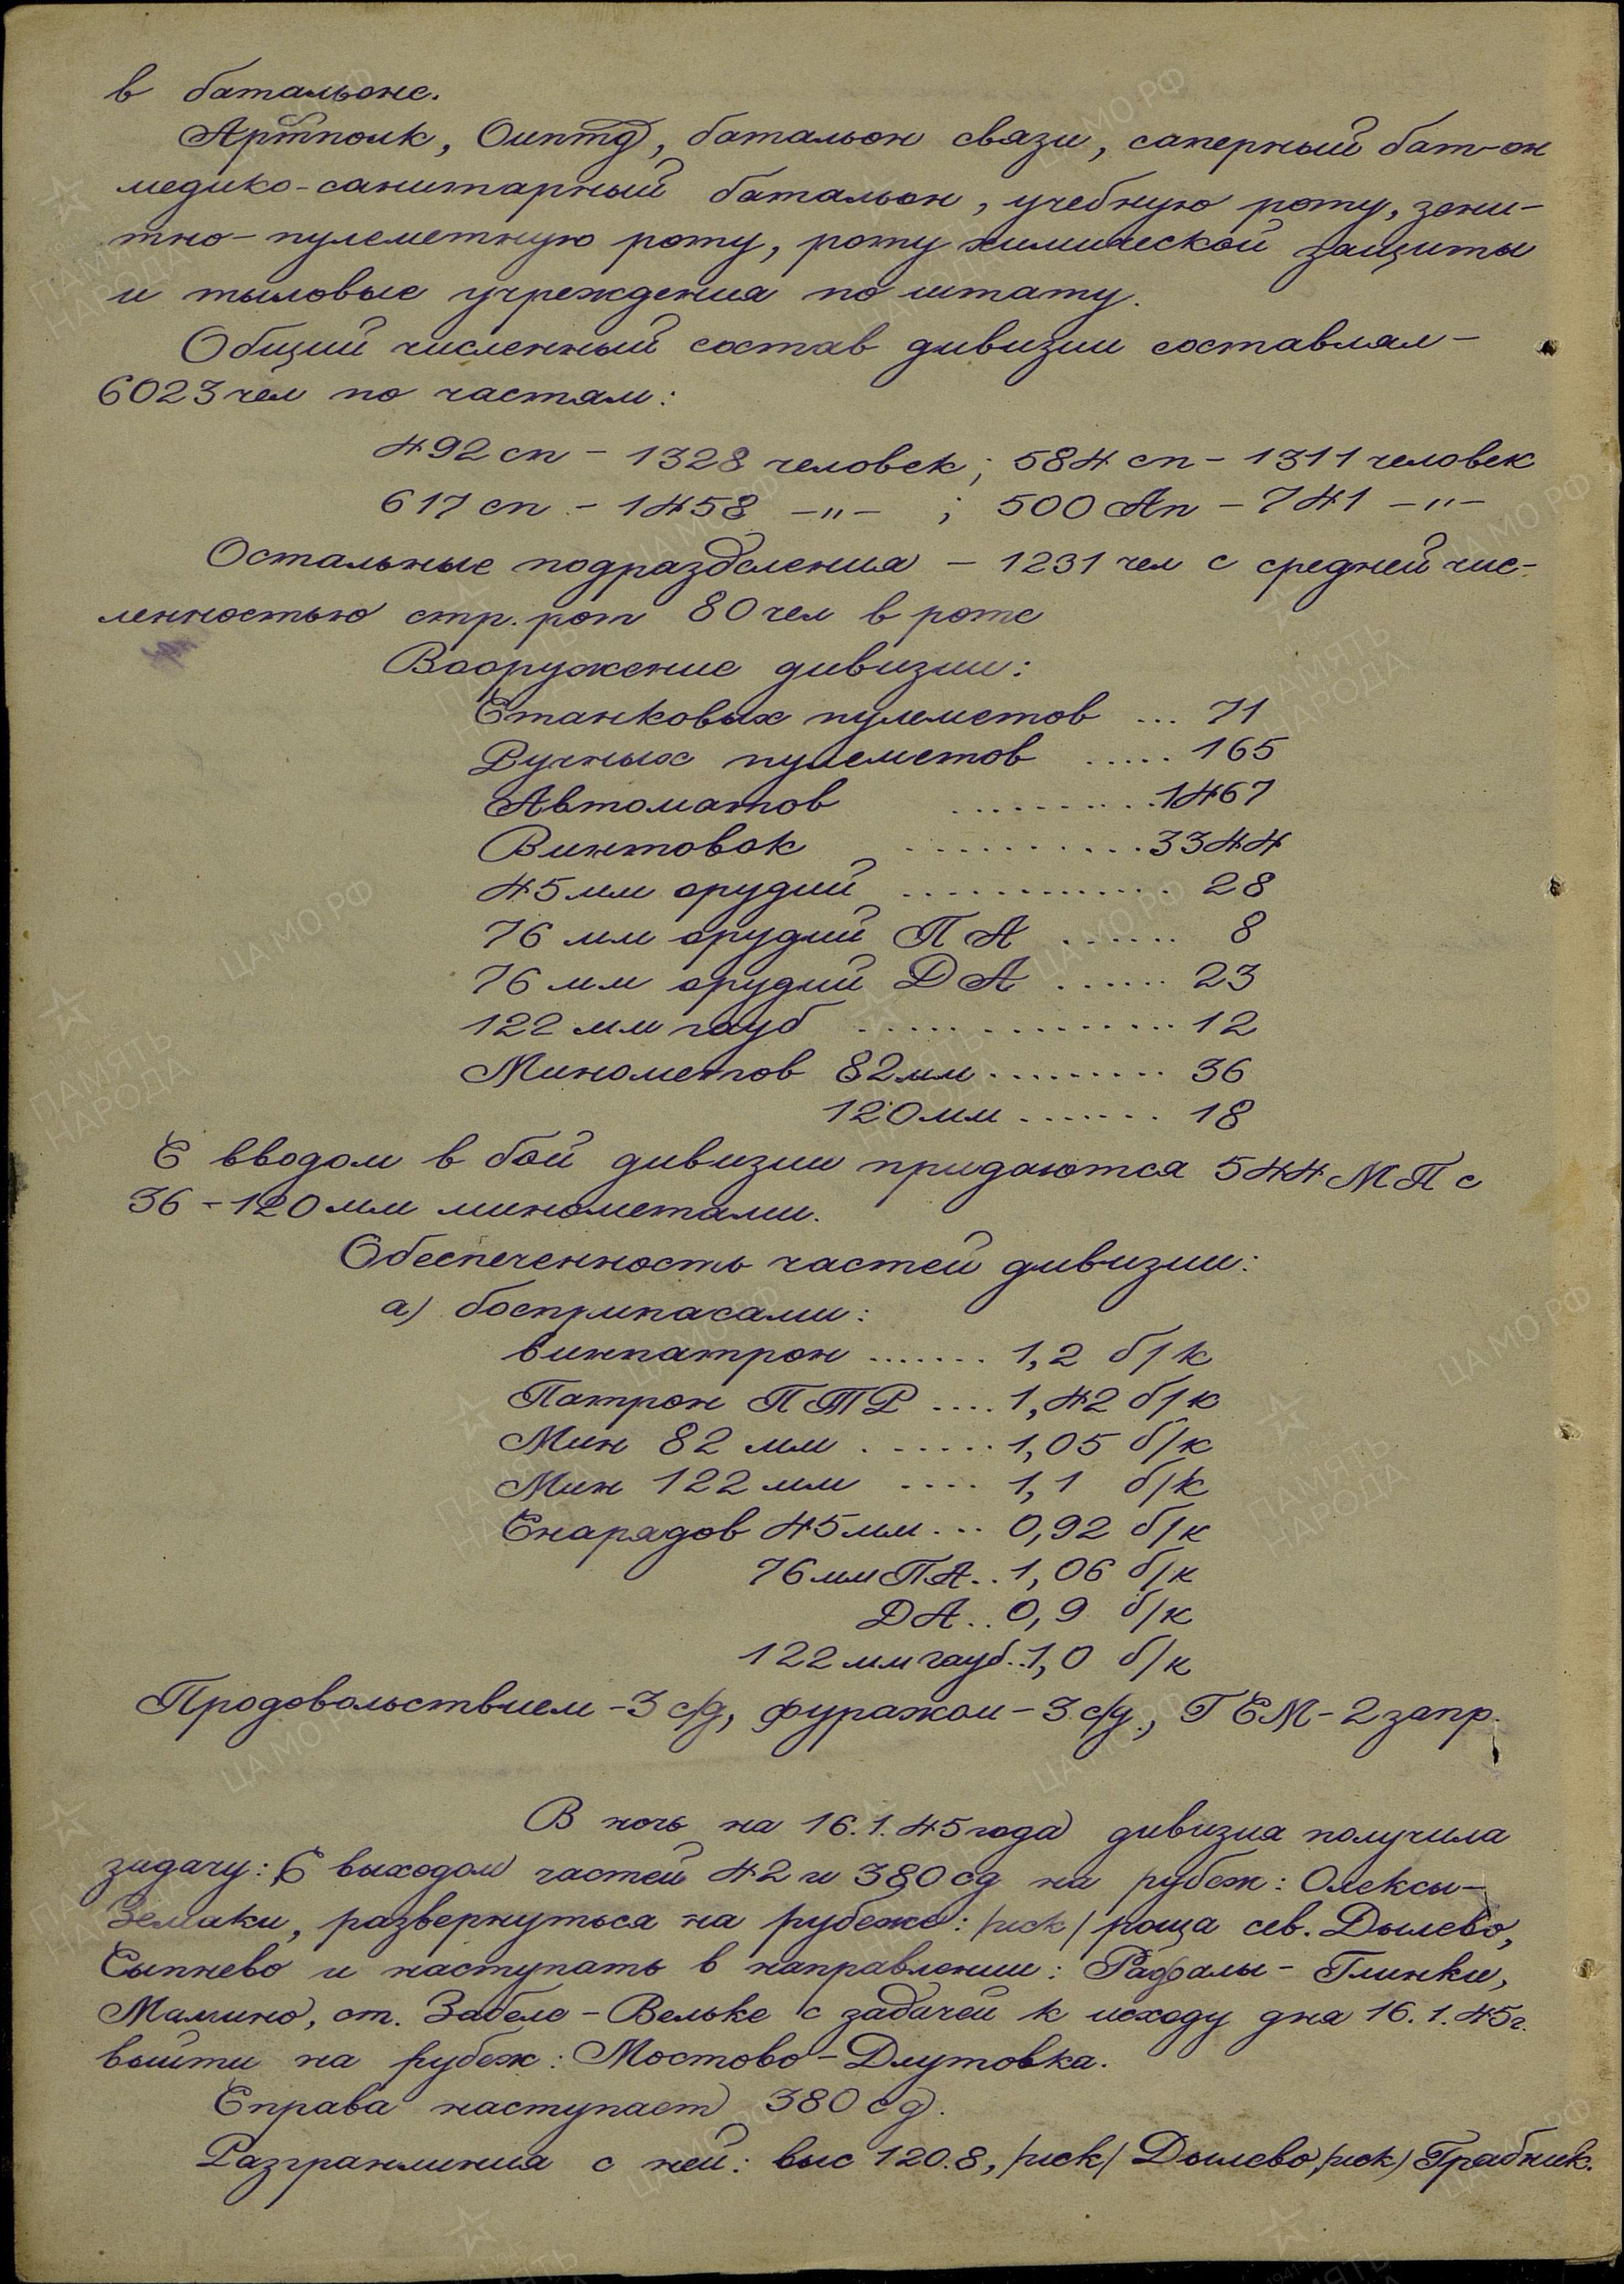 в батальоне.
Артполк, Оиптд, батальон связи, саперный бат-он
медико-санитарный батальон, учебную роту, зени-
тно-пулеметную роту, роту химической защиты
и тыловые учреждения по штату.
Общий численный состав дивизии составлял -
6023 чел по частям:
492 сп - 1328 человек; 584 сп - 1311 человек
617 сп - 1458 -"- ; 500 Ап - 741 -"-
Остальные подразделения - 1231 чел с средней чис-
ленностью стр. рот 80 чел в роте
Вооружение дивизии:
Станковых пулеметов ... 71
Ручных пулеметов ..... 165
Автоматов ......... 1467
Винтовок .......... 3344
45 мм орудий ............. 28
76 мм орудий ПА ...... 8
76 мм орудий ДА ...... 23
122 мм гауб ............... 12
Минометов 82 мм ......... 36
120 мм ....... 18
С вводом в бой дивизии придаются 544 МП с
36 - 120 мм минометами.
Обеспеченность частей дивизии:
а) боеприпасами:
винпатрон ....... 1,2 б/к
Патрон ПТР .... 1,42 б/к
Мин 82 мм ....... 1,05 б/к
Мин 122 мм .... 1,1 б/к
Снарядов 45 мм ... 0,92 б/к
76 мм ПА .. 1,06 б/к
ДА .. 0,9 б/к
122 мм гауб .. 1,0 б/к
Продовольствием - 3 с/д, фуражом - 3 с/д., ГСМ - 2 запр.
В ночь на 16.1.45 года дивизия получила
задачу: С выходом частей 42 и 380 сд на рубеж: Олексы-
Земаки, развернуться на рубеже: /иск/ роща сев. Дылево,
Сыпнево и наступать в направлении: Рафалы - Глинки,
Мамино, ст. Забеле - Вельке с задачей к исходу дня 16.1.45г.
выйти на рубеж: Мостово - Длутовка.
Справа наступает 380 сд.
Разгранлиния с ней: выс 120.8, /иск/ Дылево, /иск/ Грабник.
ПАМЯТЬ НАРОДА
ЦА МО РФ